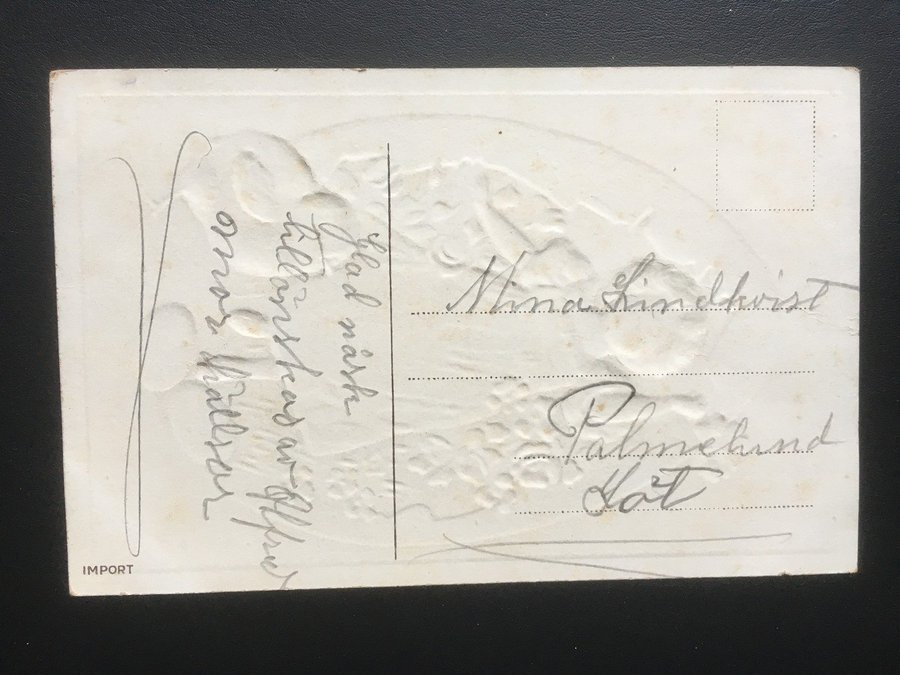 Glad påsk
tillönskas av Alfred
mor hälsar
Mina Lindkvist
Palmelund
IMPORT